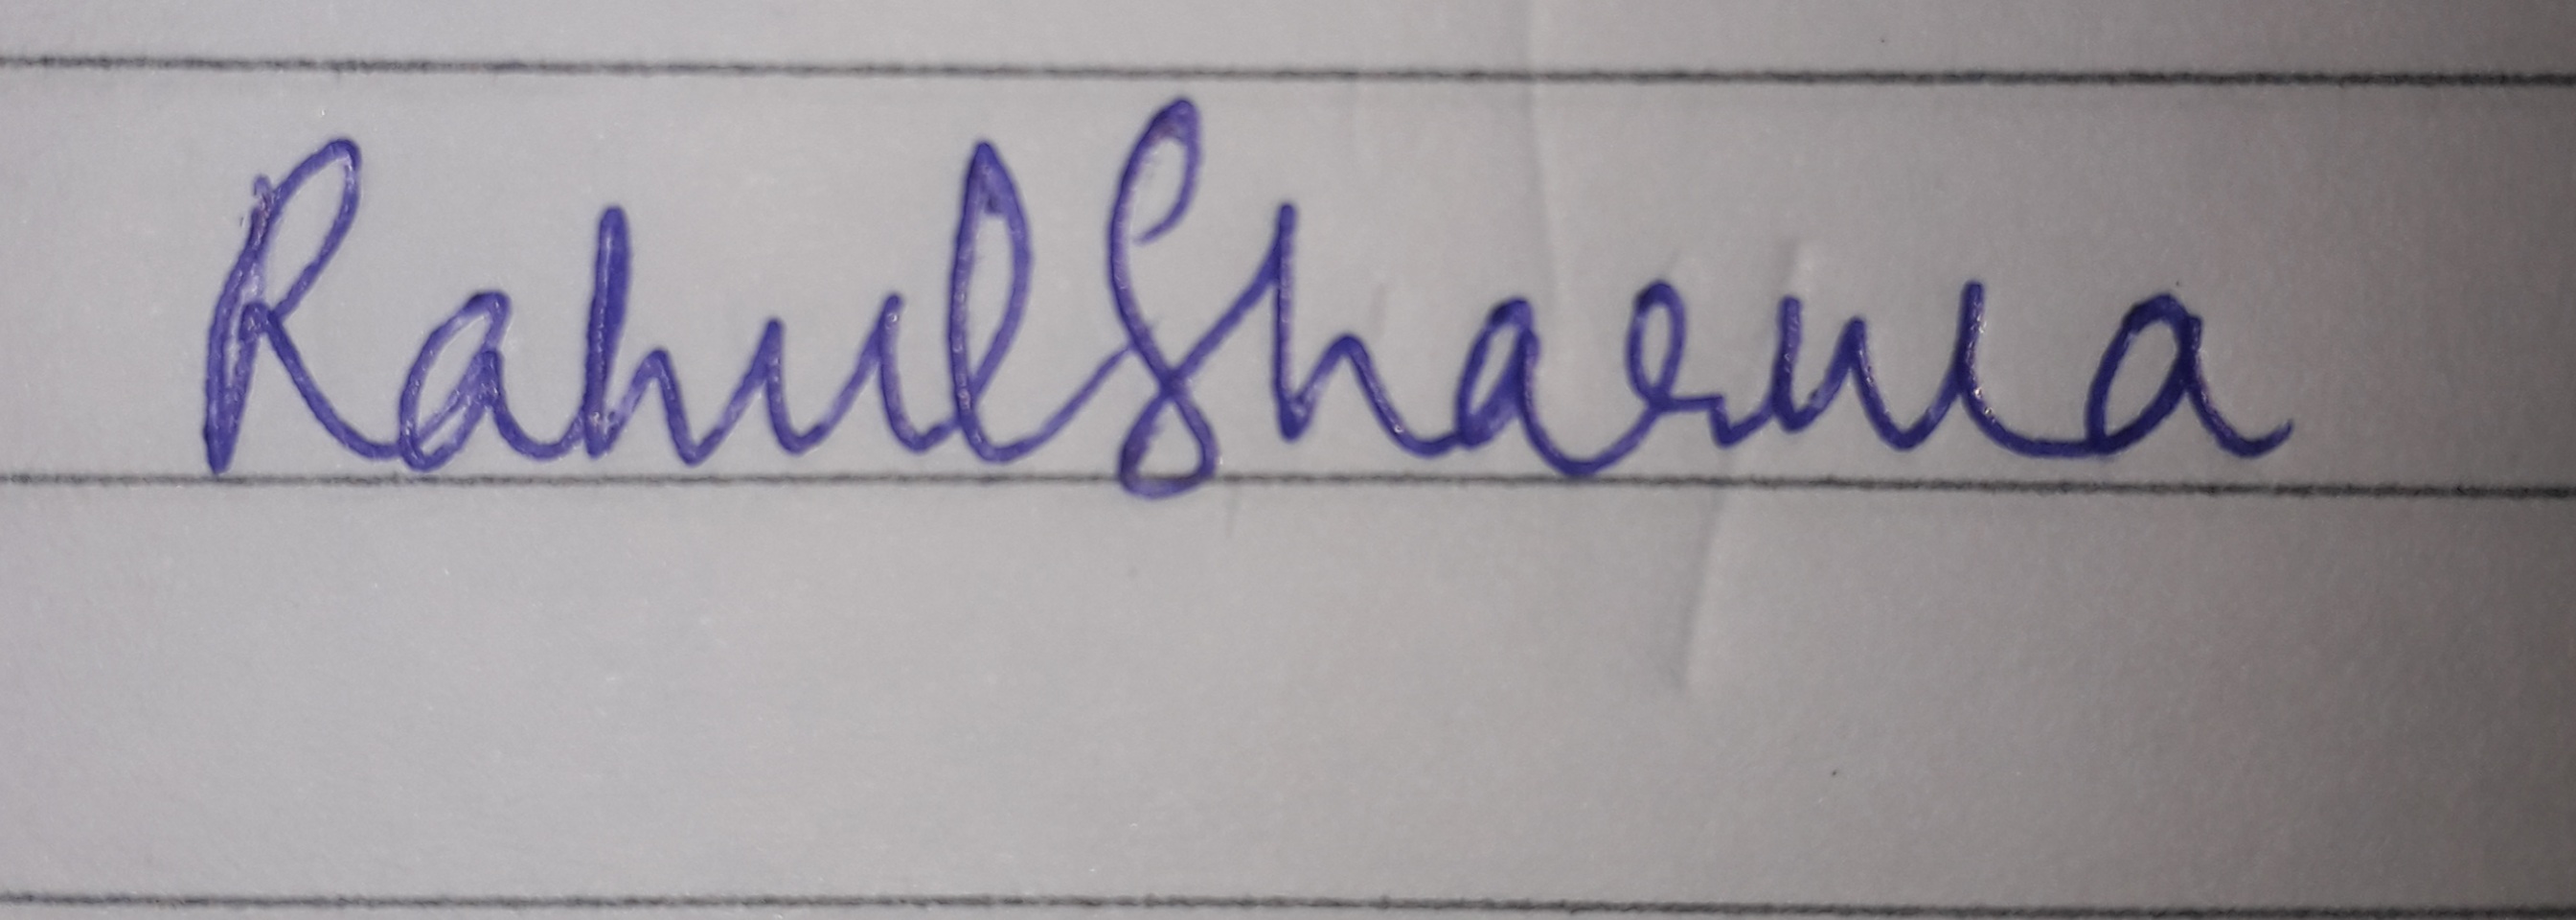 Rahul Sharma